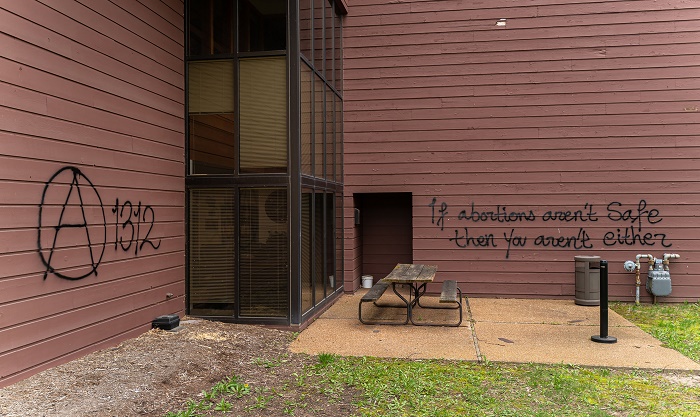 Ⓐ 1312
If abortions aren't Safe
then you aren't either